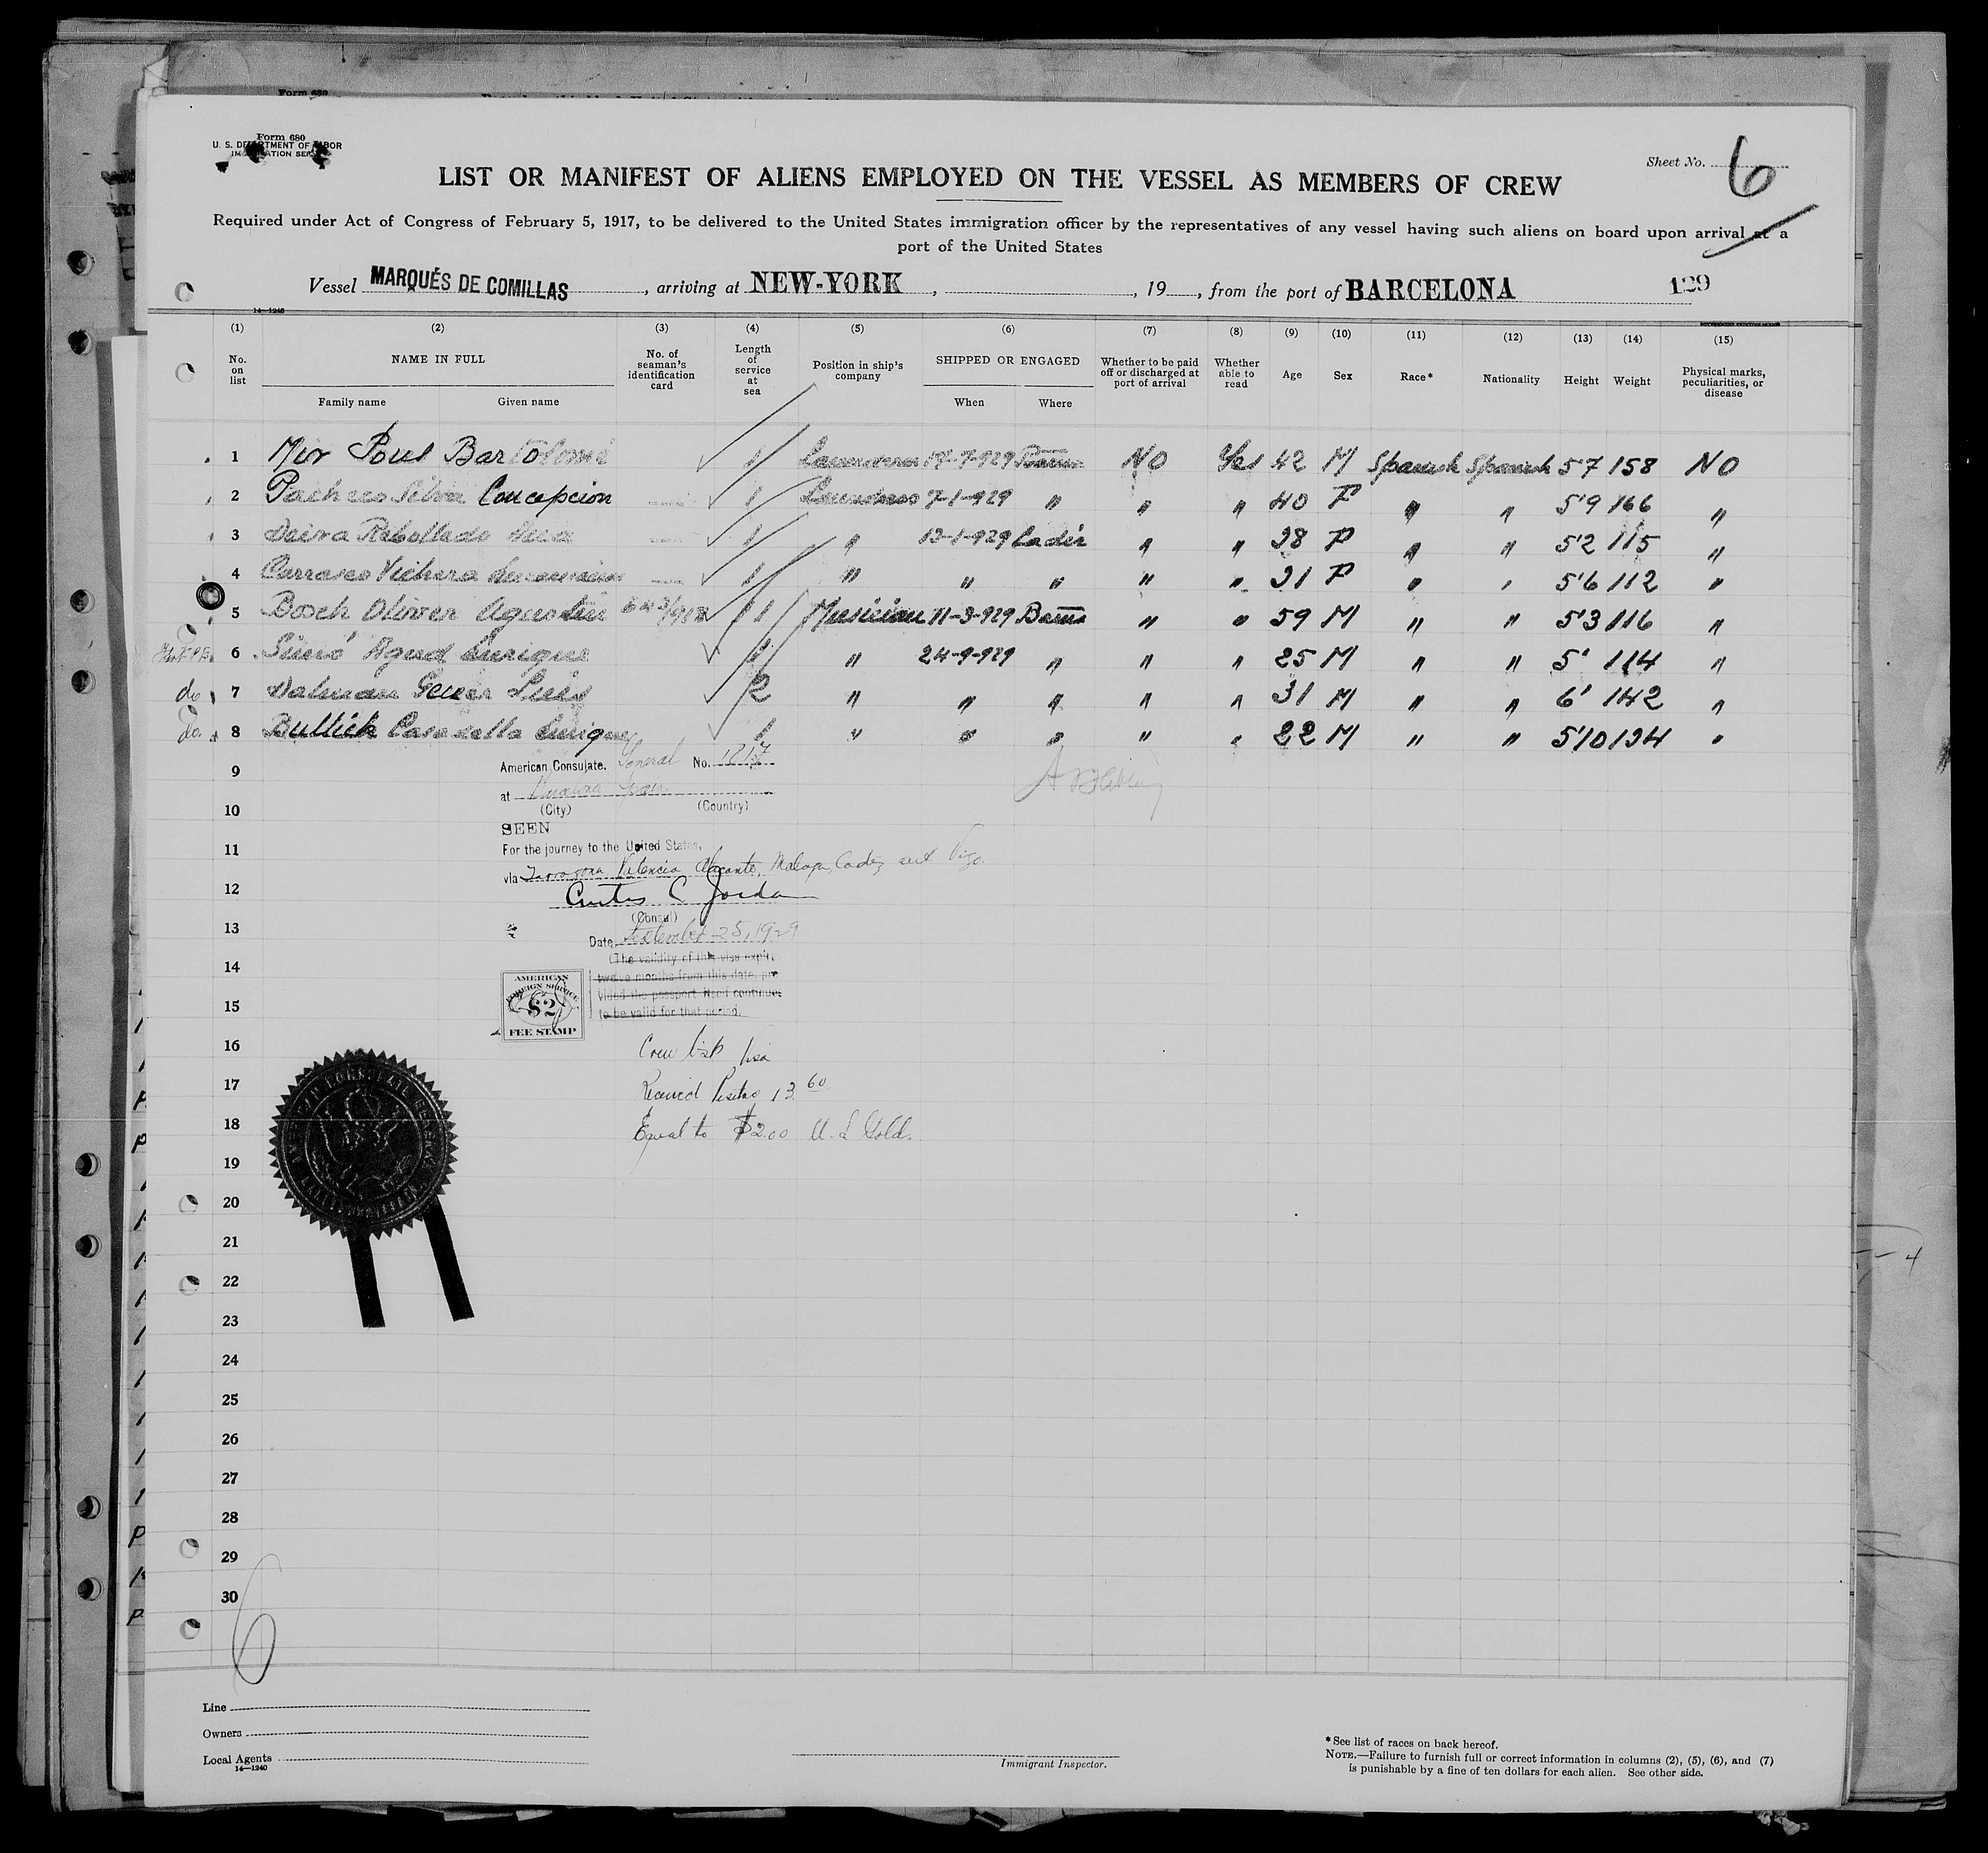 Form 680
U. S. DEPARTMENT OF LABOR
IMMIGRATION SERVICE
Sheet No. 6
LIST OR MANIFEST OF ALIENS EMPLOYED ON THE VESSEL AS MEMBERS OF CREW
Required under Act of Congress of February 5, 1917, to be delivered to the United States immigration officer by the representatives of any vessel having such aliens on board upon arrival at a
port of the United States
Vessel MARQUÉS DE COMILLAS, arriving at NEW-YORK, , 19 , from the port of BARCELONA 129
14—1240
(1) (2) (3) (4) (5) (6) (7) (8) (9) (10) (11) (12) (13) (14) (15)
No. on list NAME IN FULL No. of seaman's identification card Length of service at sea Position in ship's company SHIPPED OR ENGAGED Whether to be paid off or discharged at port of arrival Whether able to read Age Sex Race* Nationality Height Weight Physical marks, peculiarities, or disease
Family name Given name When Where
1 Mir Pous Bartolomé 1 17-7-929 NO Yes 42 M Spanish Spanish 5'7 158 NO
2 Pacheco Silva Concepcion 1 Laundress 7-1-929 " " " 40 F " " 5'9 166 "
3 1 " 13-1-929 Cadiz " " 38 F " " 5'2 115 "
4 Carrasco 1 " " " " " 31 F " " 5'6 112 "
5 Bosch Oliver Agustin 11 Musician 11-3-929 " " 59 M " " 5'3 116 "
6 Simó Enrique " 24-9-929 " " " 25 M " " 5' 114 "
do 7 Dalmau Luis 2 " " " " " 31 M " " 6' 142 "
do. 8 Enrique 1 " " " " " 22 M " " 5'10 134 "
9
American Consulate. General No.
at Barcelona Spain
10
(City) (Country)
SEEN
11
For the journey to the United States,
via Tarragona Valencia Alicante, Malaga, Cadiz and Vigo.
12
Curtis C Jordan
(Consul)
13
Date September 25, 1929
14
(The validity of this visa expires
twelve months from this date, pro-
vided the passport itself continues
to be valid for that period.
15
AMERICAN
FOREIGN SERVICE
$2
FEE STAMP
16
Crew list visa
17
Received Pesetas 13.60
18
Equal to $2.00 U. S. Gold.
19
20
21
22
23
24
25
26
27
28
29
30
6
Line
Owners
Local Agents
14—1240
Immigrant Inspector.
*See list of races on back hereof.
NOTE.—Failure to furnish full or correct information in columns (2), (5), (6), and (7)
is punishable by a fine of ten dollars for each alien. See other side.